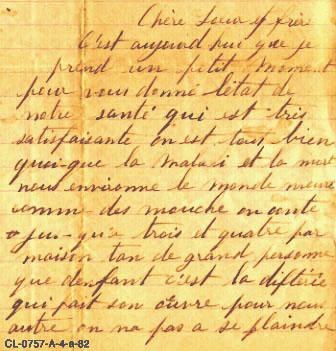 Chère Soeur et frère
C'est aujourd hui que je
prend un petit moment
pour vous donné l'état de
notre santé qui est très
satisfaisante on est tous bien
quoi-que la maladi et la mort
nous environne le monde meure
comme des mouche on ante
jus-qu'a trois et quatre par
maison tan de grand personne
que denfant c'est la difterie
qui fait son œuvre pour nous
autre on na pas a se plaindre
CL-0757-A-4-a-82